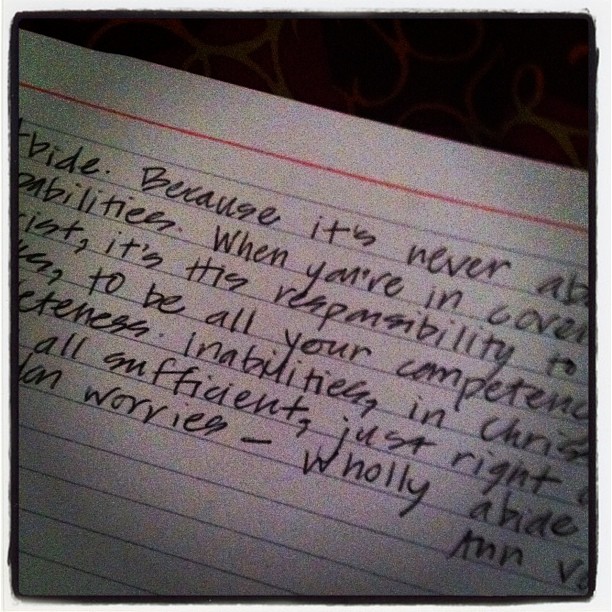 Abide. Because it's never ab
abilities. When you're in coven
rist, it's His responsibility to
to be all your competenc
eteness. inabilities, in Chris
all sufficient, just right
worries - Wholly abide
Ann Vo